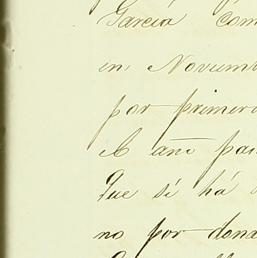 García com
en Noviemb
por primera
El ano pas
Que si há
no por dona